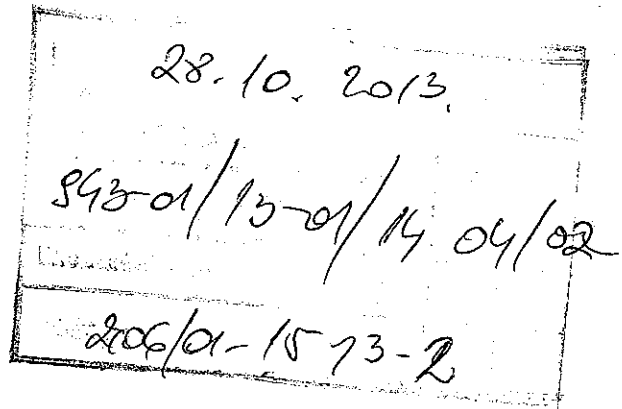 28.10.2013.
943-01/13-01/14 04/02
2106/01-15 13-2